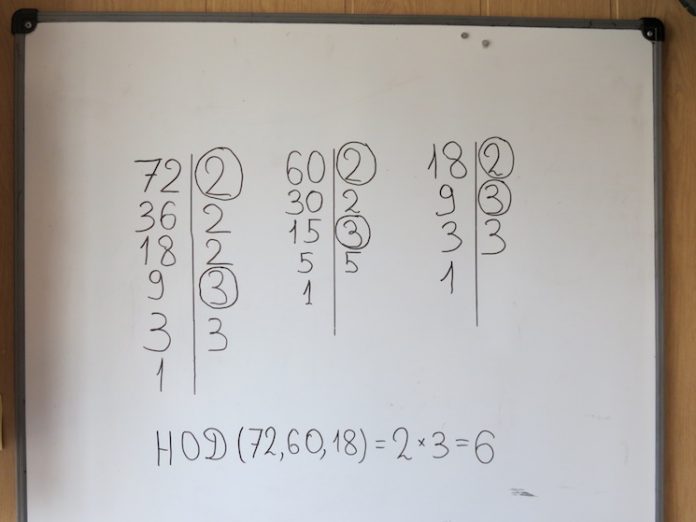 72 | 2
36 | 2
18 | 2
9 | 3
3 | 3
1 |
60 | 2
30 | 2
15 | 3
5 | 5
1 |
18 | 2
9 | 3
3 | 3
1 |
НОД (72,60,18) = 2 × 3 = 6